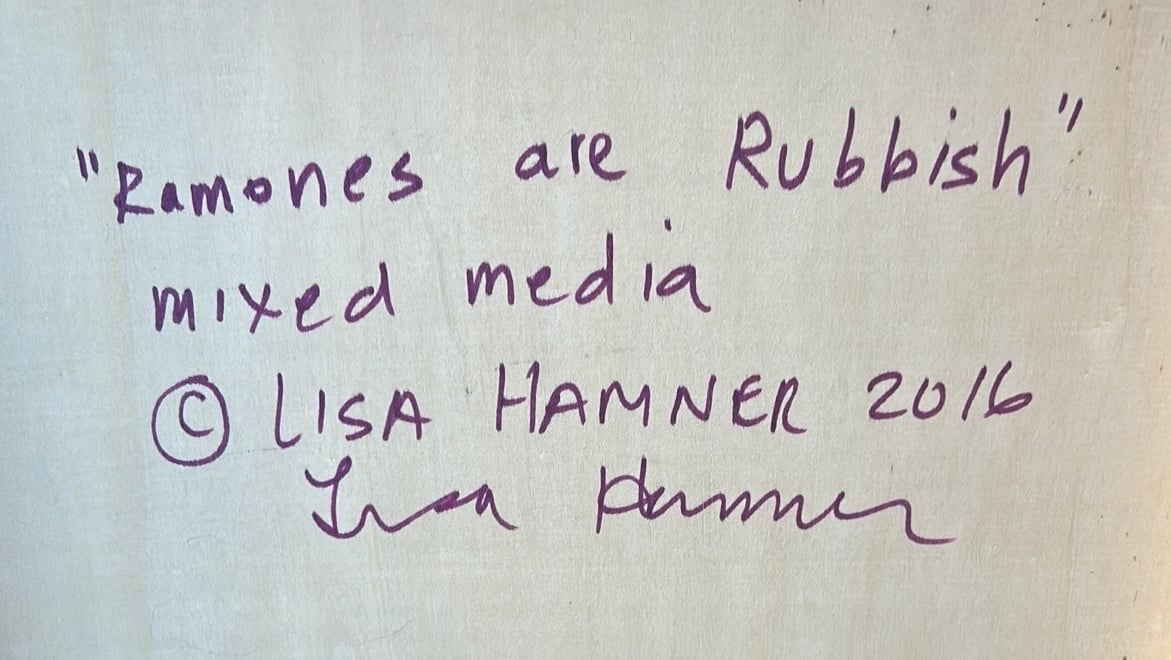 "Ramones are Rubbish"
mixed media
© LISA HAMNER 2016
Lisa Hamner